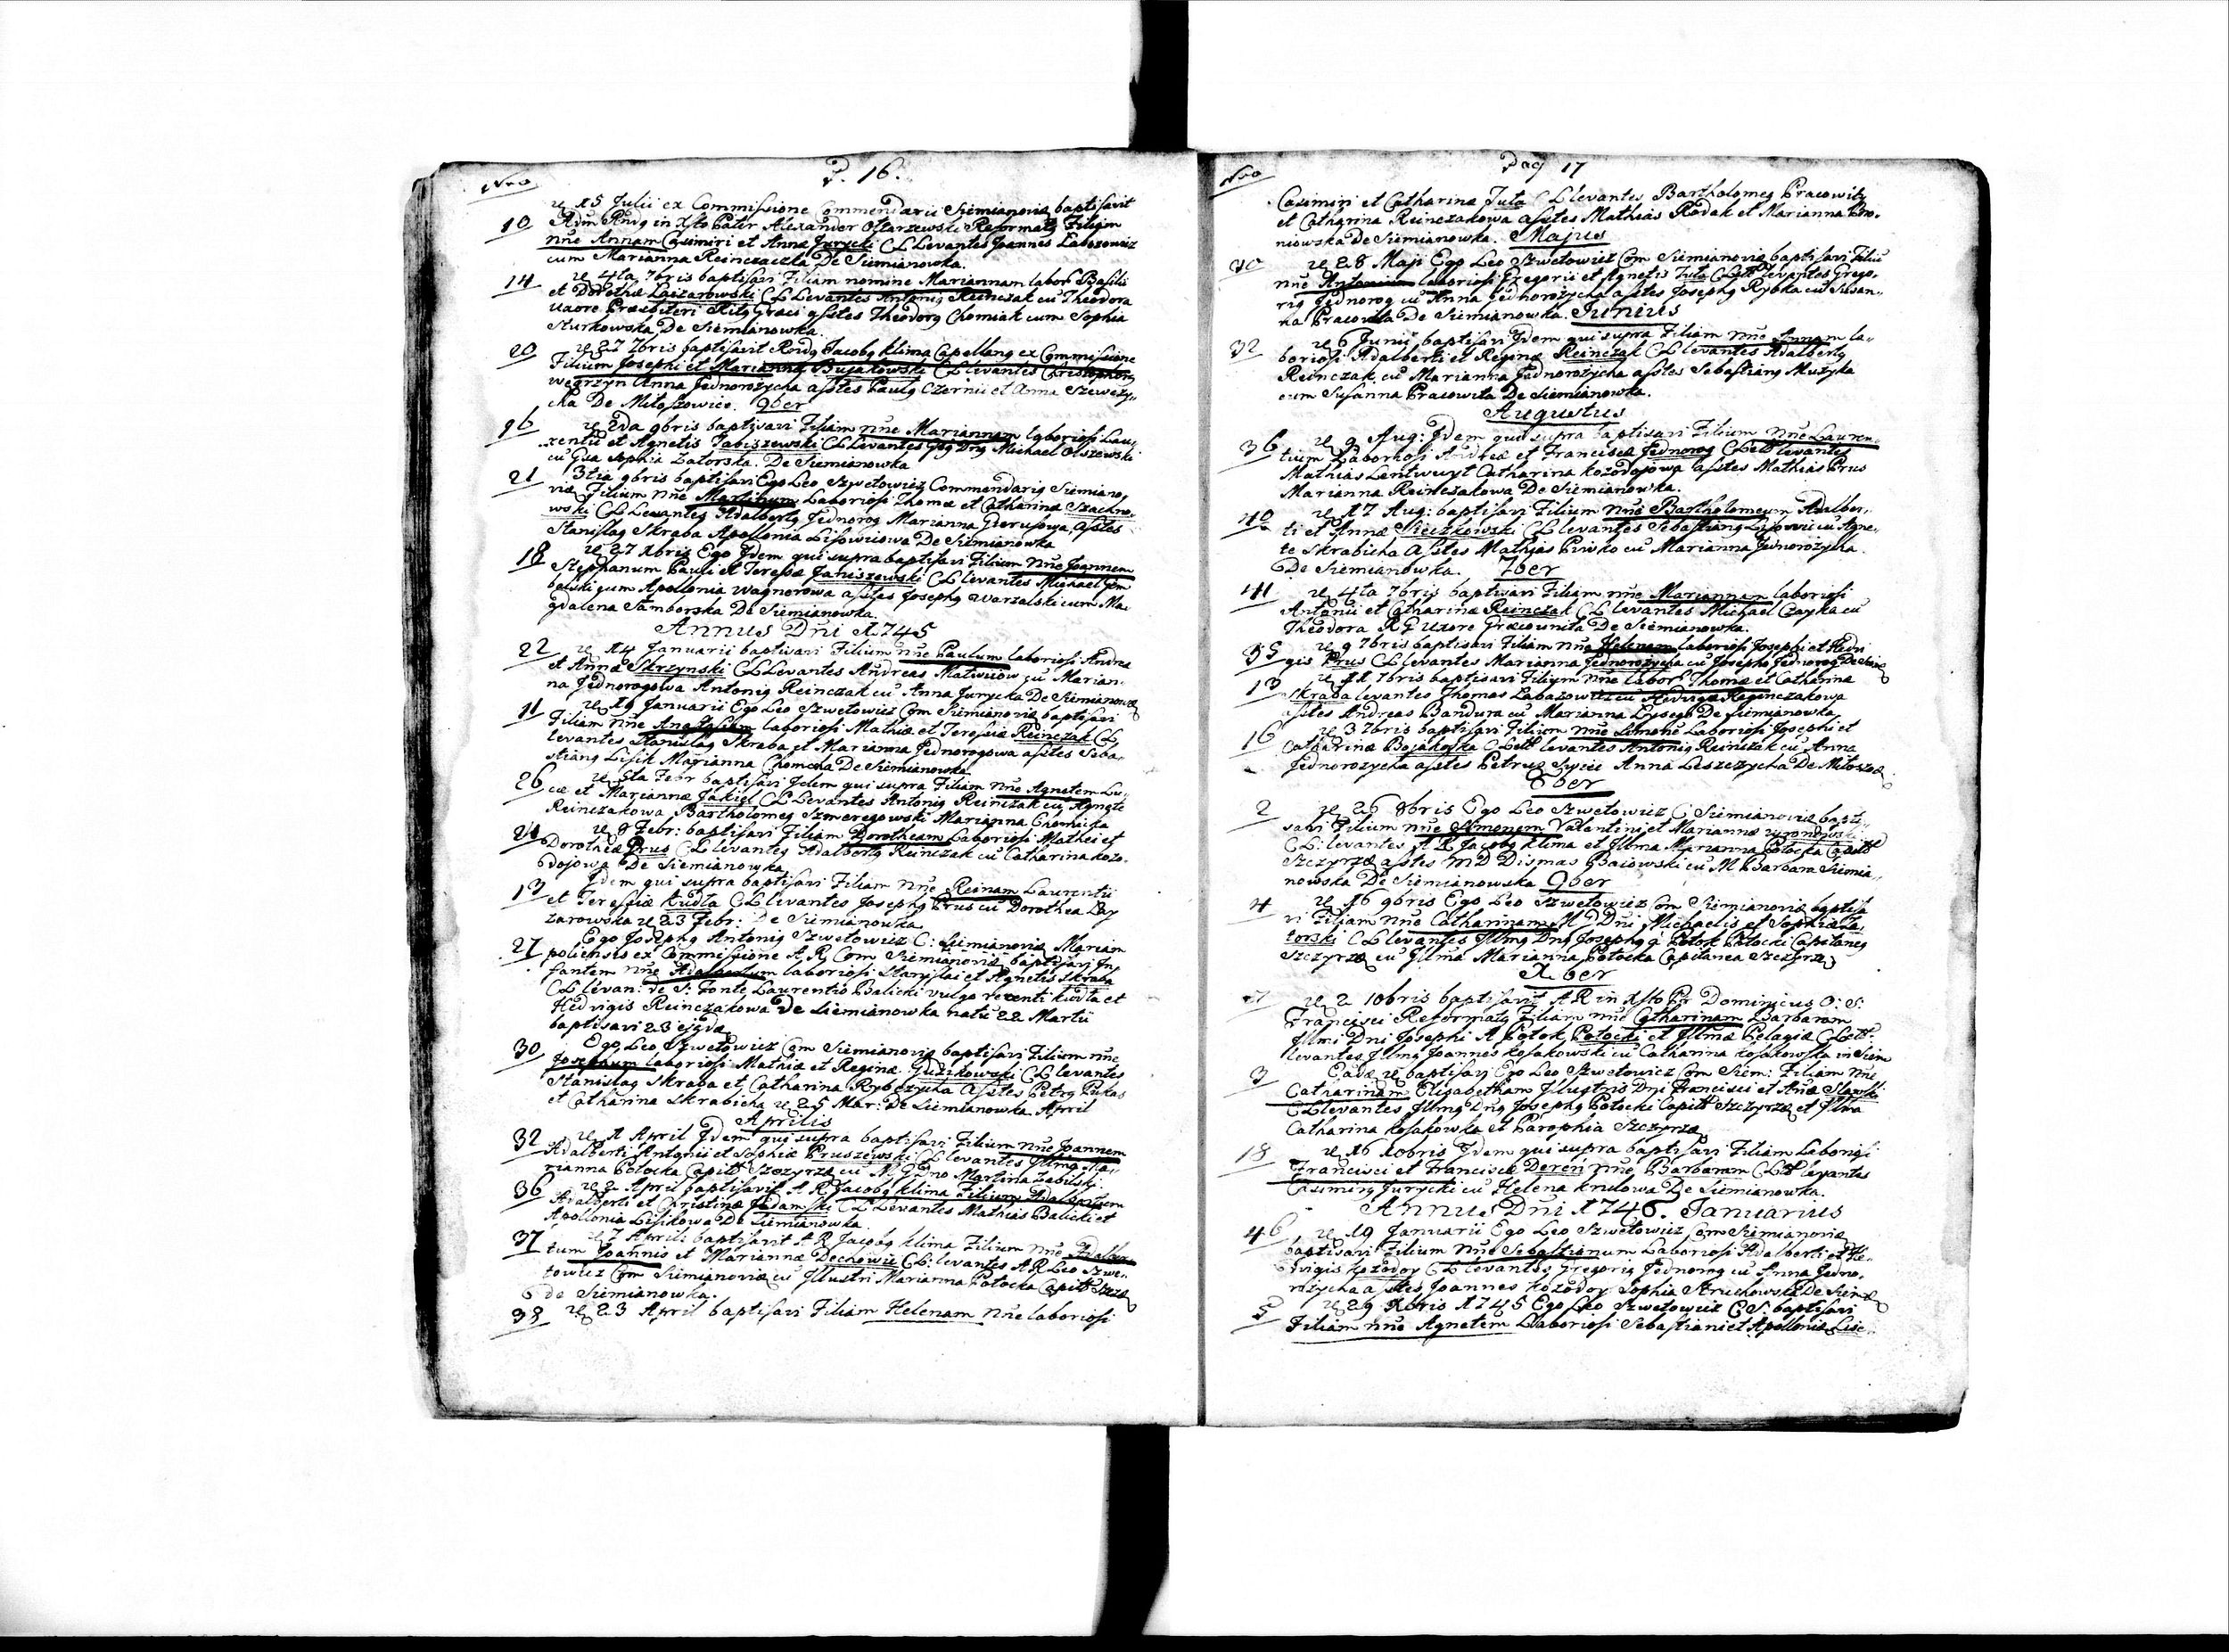 P. 16.
Nro
et 15 Julii ex Commissione Commendarii Siemianoviæ baptisavit
10 Adm Rndg in Xsto Pater Alexander Ostarzewski Reformatg Filiam
nne Annam Casimiri et Annæ Jurycki CL Levantes Joannes Labozowicz
cum Marianna Reinczaczka De Siemianowka.
14 4ta 7bris baptisavi Filiam nomine Mariannam labor Basilii
et Dorotheæ Lazarowski CL Levantes Antonig Reinczak cu Theodora
Uxore Præsbiteri Ritg Græci asstes Theodorg Chomiak cum Sophia
Sturkowska De Siemianowka.
20 27 7bris baptisavit Rondg Jacobg Klima Capellang ex Commissione
Filium Josephi et Mariannæ Bujakowski CL Levantes Christophorg
Węgrzyn Anna Jednorozycha asstes Paulg Czernii et Anna Szewczy-
cha De Miłoszowice. 9ber
96 2da 9bris baptisavi Filiam nne Mariannam laboriosi Lau-
rentii et Agnetis Jabiszewski CL Levantes Gsg Dng Michael Olszewski
cu Gsa Sophia Zatorska. De Siemianowka
21 3tia 9bris baptisavi Ego Leo Szwetowicz Commendarig Siemiano-
viæ Filium nne Martinum Laboriosi Thomæ et Catharinæ Szachno-
wski CL Levantes Adalbertg Jednorog Marianna Gderusowa, asstes
Stanislag Skraba Apollonia Lisowiowa De Siemianowka
18 27 Xbris Ego Jdem qui supra baptisavi Filium nne Joannem
Stephanum Pauli et Teresiæ Janiszewski CL levantes Michael
belski cum Apollonia Wagnerowa asstes Josephg Warzalski cum Ma-
gdalena Samborska De Siemianowka.
Annus Dni 1745
22 14 Januarii baptisavi Filium nne Paulum laboriosi Andreæ
et Annæ Skrzynski CL Levantes Andreas Matwiiow cu Marian-
na Jednorogowa Antonig Reinczak cu Anna Jurycka De Siemianowæ
11 19 Januarii Ego Leo Szwetowicz Com Siemianoviæ baptisavi
Filiam nne Anastasiam laboriosi Mathiæ et Teresiæ Reinczak CL
levantes Stanislag Skraba et Marianna Jednorogowa asstes Seba-
stiang Lisik Marianna Chomcza De Siemianowka
26 5ta Febr baptisavi Jdem qui supra Filiam nne Agnetem Lu-
cæ et Mariannæ Jakiel CL Levantes Antonig Reinczak cu Agnete
Reinczakowa Bartholomeg Szweregowski Marianna Chomicka
24 8 Febr: baptisavi Filiam Dorotheam Laboriosi Mathei et
Dorotheæ Prus CL levantes Adalbertg Reinczak cu Catharina kozo-
dojowa De Siemianowka
13 Jdem qui supra baptisavi Filiam nne Reinam Laurentii
et Teresiæ Kudła CL levantes Josephg Prus cu Dorothea Lay
zarowska 23 Febr: De Siemianowka
27 Ego Josephg Antonig Szwetowicz C: Siemianoviæ Mariam
poliensis ex Commissione A R Com Siemianoviæ baptisavi In
fantem nne Adalbertum laboriosi Stanislai et Agnetis Skraba
CL levan: de S: Fonte Laurentio Balicki vulgo recenti Kudła et
Hedvigis Reinczakowa De Siemianowka natu 22 Martii
baptisavi 23 ejgda
30 Ego Leo Szwetowicz Com Siemianoviæ baptisavi Filium nne
Josephum laboriosi Mathiæ et Reginæ Guzikowski CL levantes
Stanislag Skraba et Catharina Rybczycha asstes Petrg Pukas
et Catharina Skrabicha 25 Mar: De Siemianowka April
Aprilis
32 1 April Jdem qui supra baptisavi Filium nne Joannem
Adalberti Antonii et Sophiæ Pruszewski CL levantes Jllmg Ma-
rianna Potocka Capitt Szczyrzæ cu M G Dno Martino Zabilski
36 2 April baptisavit A R Jacobg Klima Filium Adalbertum
Adalberti et Christinæ Adamski CL Levantes Mathias Balicki et
Apollonia Lisikowa De Siemianowka.
37 7 Aprili baptisavit A R Jacobg Klima Filium nne Adalber
tum Joannis et Mariannæ Dechowii CL: levantes A R Leo Szwe-
towicz Com Siemianoviæ cu Jllustri Marianna Potocka Capitt Szczæ
de Siemianowka.
38 23 April baptisavi Filiam Helenam nne laboriosi
Pag 17
Nro
Casimiri et Catharinæ Juta CL levantes Bartholomeg Pracowity
et Catharina Reinczakowa asstes Mathias Rodak et Marianna Bro-
niowska De Siemianowka. Majus
30 28 Maji Ego Leo Szwetowicz Com Siemianoviæ baptisavi Filiu
nne Antonium laboriosi Gregorii et Agnetis Juta CLett levantes Grego-
rig Jednorog cu Anna Jednorozycha asstes Josephg Rybka cu Susan-
na Pracowita De Siemianowka. Junius
32 6 Junii baptisavi Jdem qui supra Filiam nne Annam la-
boriosi Adalberti et Reginæ Reinczak CL levantes Adalbertg
Reinczak, cu Marianna Jednorozycha asstes Sebastiang Muzyka
cum Susanna Pracowita De Siemianowka.
Augustus
36 9 Aug: Jdem qui supra baptisavi Filium nne Lauren-
tium Laboriosi Andreæ et Franciscæ Jednorog CLett levantes
Mathias Lentwuyt Catharina kozodojowa asstes Mathias Prus
Marianna Reinczakowa De Siemianowka.
40 17 Aug: baptisavi Filium nne Bartholomeum Adalber-
ti et Annæ Sieczkowski CL levantes Sebastiang Lisowii cu Agne-
te Skrabicha asstes Mathias Piwko cu Marianna Jednorozycha.
De Siemianowka. 7ber
41 4ta 7bris baptisavi Filiam nne Mariannam laboriosi
Antonii et Catharinæ Reinczak CL levantes Michael Czayka cu
Theodora R G Uxore Græcounita De Siemianowka.
35 9 7bris baptisavi Filiam nne Helenam laboriosi Josephi et Hedvi
gis Prus CL levantes Marianna Jednorozycha cu Josepho Jednorog De Siem
13 11 7bris baptisavi Filium nne labor Thomæ et Catharinæ
Skraba levantes Thomas Labazowicz cu Hedviga Reginczakowa
asstes Andreas Bandura cu Marianna Lysego De Siemianowka
16 3 7bris baptisavi Filium nne Simone Laboriosi Josephi et
Catharinæ Bojakoska CLett levantes Antonig Reinczak cu Anna
Jednorozycha asstes Petrus Sysii Anna Leszczycha De Miłoszæ
8ber
2 26 8bris Ego Leo Szwetowicz C Siemianoviæ bapti-
savi Filium nne Simonem Valentini et Mariannæ
CL: levantes A R Jacobg Klima et Jllma Marianna Potocka Capitt
Szczyrzæ asstes M D Dismas Baiowski cu M Barbara Siemia-
nowska De Siemianowska 9ber
4 16 9bris Ego Leo Szwetowicz Com Siemianoviæ baptisa
vi Filiam nne Catharinam M D Dni Michaelis et Sophiæ Za-
torski CL levantes Jllmg Dng Josephg a Potok Potocki Capitaneg
Szczyrzæ cu Jllma Marianna Potocka Capitanea Szczyrzæ
X ber
2 10bris baptisavit A R in Xsto Pr Dominicus O: S:
Francisci Reformatg Filiam nne Catharinam Barbaram
Jllmi Dni Josephi A Potok Potocki et Jllmæ Pelagiæ CLett
levantes Jllmg Joannes kosakowski cu Catharina kosakowska in Siem
3 Eadæ baptisavi Ego Leo Szwetowicz Com Siem: Filiam nne
Catharinam Elisabetham Jllustris Dni Francisci et Anæ Slawski
CL levantes Jllmg Dng Josephg Potocki Capitt Szczyrzæ et Jllma
Catharina kosakowska et Parophia Szczyrzæ
18 16 Xobris Jdem qui supra baptisavi Filiam Laboriosi
Francisci et Franciscæ Dereń nne Barbaram CLtt levantes
Casimirg Jurycki cu Helena krulowa De Siemianowka.
Annus Dni 1746. Januarius
46 19 Januarii Ego Leo Szwetowicz Com Siemianoviæ
baptisavi Filium nne Sebastianum Laboriosi Adalberti et He-
dvigis Kozodoy CL levantes Gregorig Jednorog cu Anna Jedno-
rozycha asstes Joannes kozodoy Sophia Struchowska De Siem
5 29 Xbris 1745 Ego Leo Szwetowicz C S: baptisavi
Filiam nne Agnetem Laboriosi Sebastiani et Apolloniæ Lise-